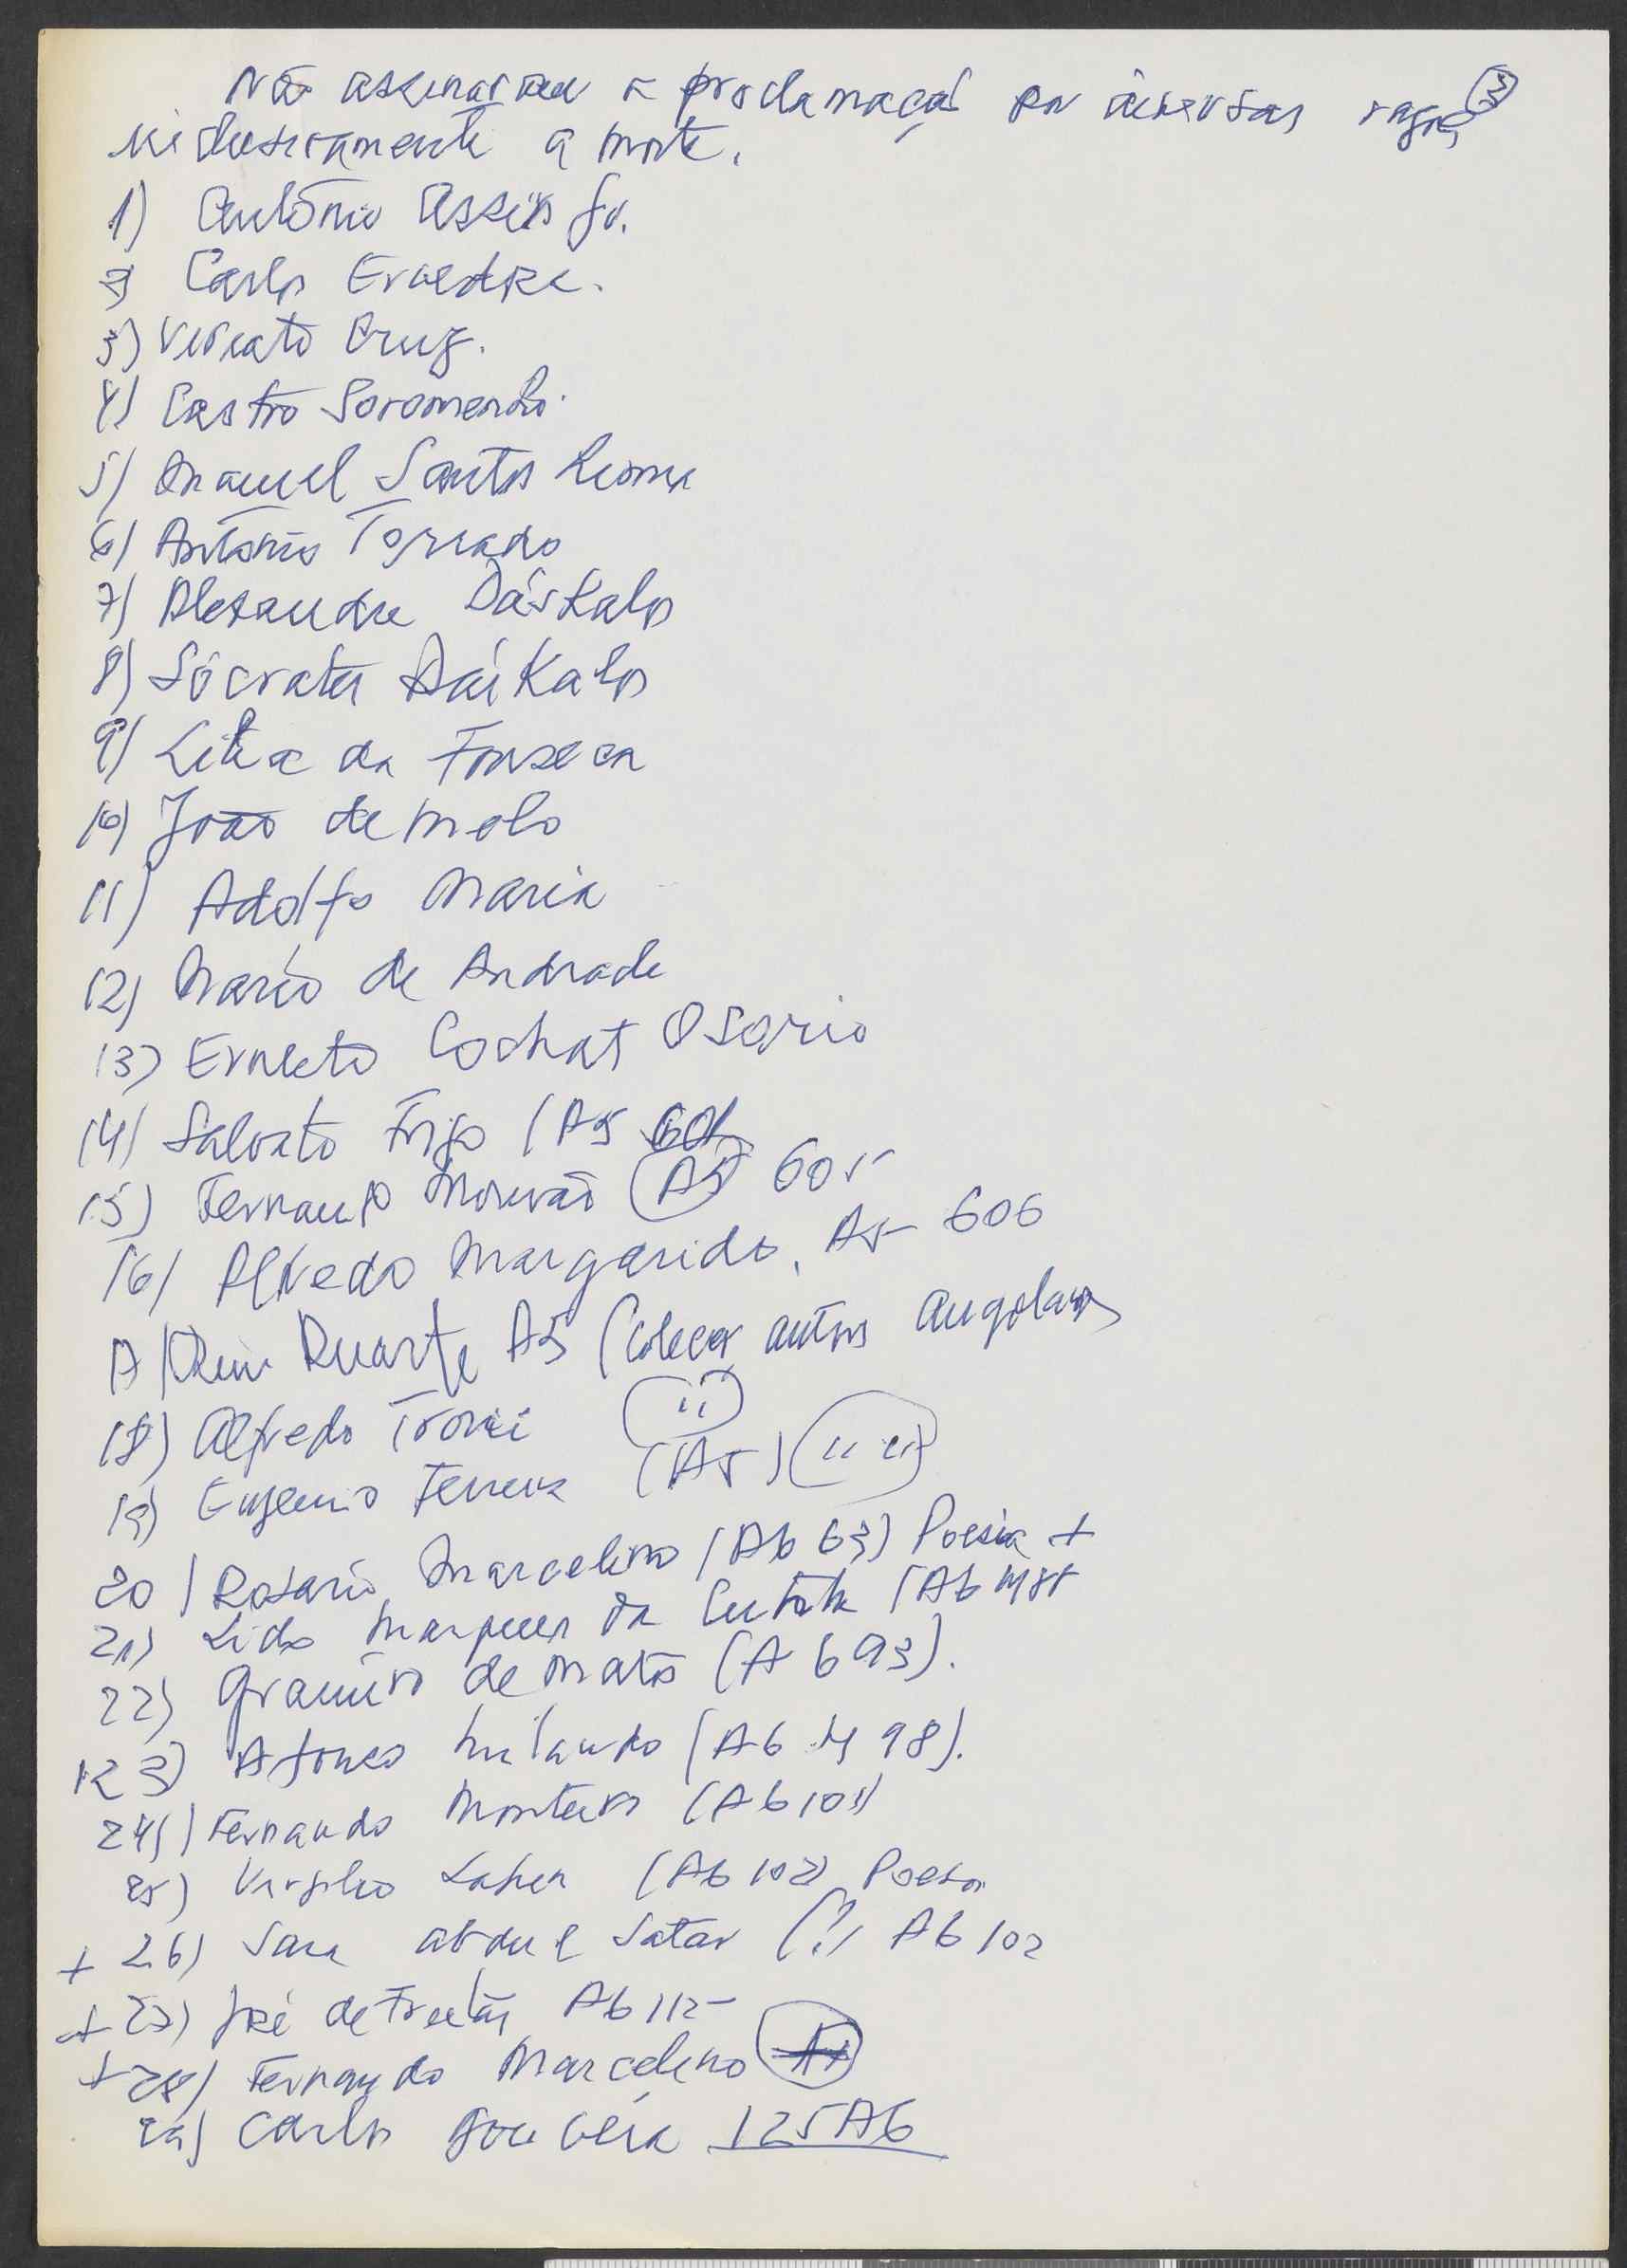 Não assinaram a proclamação por diversas razões (3)
inclusivamente a morte.
1) António Assis Jr.
2) Carlos Ervedosa.
3) Viriato Cruz.
4) Castro Soromenho.
5) Manuel Santos Lima
6) António Torrado
7) Alexandre Dáskalos
8) Sócrates Dáskalos
9) Lília da Fonseca
10) João de Melo
11) Adolfo Maria
12) Mário de Andrade
13) Ernesto Cochat Osório
14) Salvato Trigo (A5 601
15) Fernando Mourão (A5) 605
16) Alfredo Margarido, A5 606
17) Ruy Duarte A5 (Colecção autores angolanos
18) Alfredo Troni (")
19) Eugénio Ferreira (A5) (" ")
20) Rosário Marcelino (A6 63) Poesia +
21) Lido Marques da (A6
22) de Matos (A 6 93).
23) Afonso Milando (A6 98).
24) Fernando Monteiro (A6 101)
25) Virgílio (A6 102) Poesia
+ 26) Sara Abdul Satar (?) A6 102
+ 27) José de Freitas A6 112
+ 28) Fernando Marcelino
29) Carlos Gouveia 125 A6